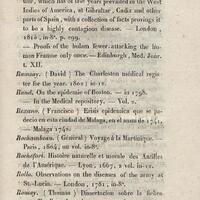 tur, which has of late years prevailed in the West
Indies of America, at Gibraltar, Cadix and other
parts of Spain, with a collection of facts proving it
to be a highly contagious disease. — London,
1818, in-8°. p. 199.
— Proofs of the bulam fewer attacking the hu-
man Framme only once. — Edinburgh, Med. Jour.
t. XII.
Ramsay. ( David ) The Charleston medical regis-
ter for the year. 1802; in-12.
Rand. On the epidemic of Boston. — in 1798.
— In the Medical repository. — Vol. 2.
Rexano. ( Francisco ) Crisis epidemica que se pa-
decio en esta ciudad de Malaga, en el anno de 1741,
— Malaga 1742.
Rochambeau. ( Général ) Voyage à la Martinique. —
Paris, 1804, un vol. in-8°.
Rochefort. Histoire naturelle et morale des Antilles
de l'Amérique. — Lyon, 1667, 2 vol. in-12.
Rollo. Observations on the diseases of the army at
St.-Lucia. — London, 1781, in-8°.
Romay. ( Thomas ) Dissertacion sobre la fiebre